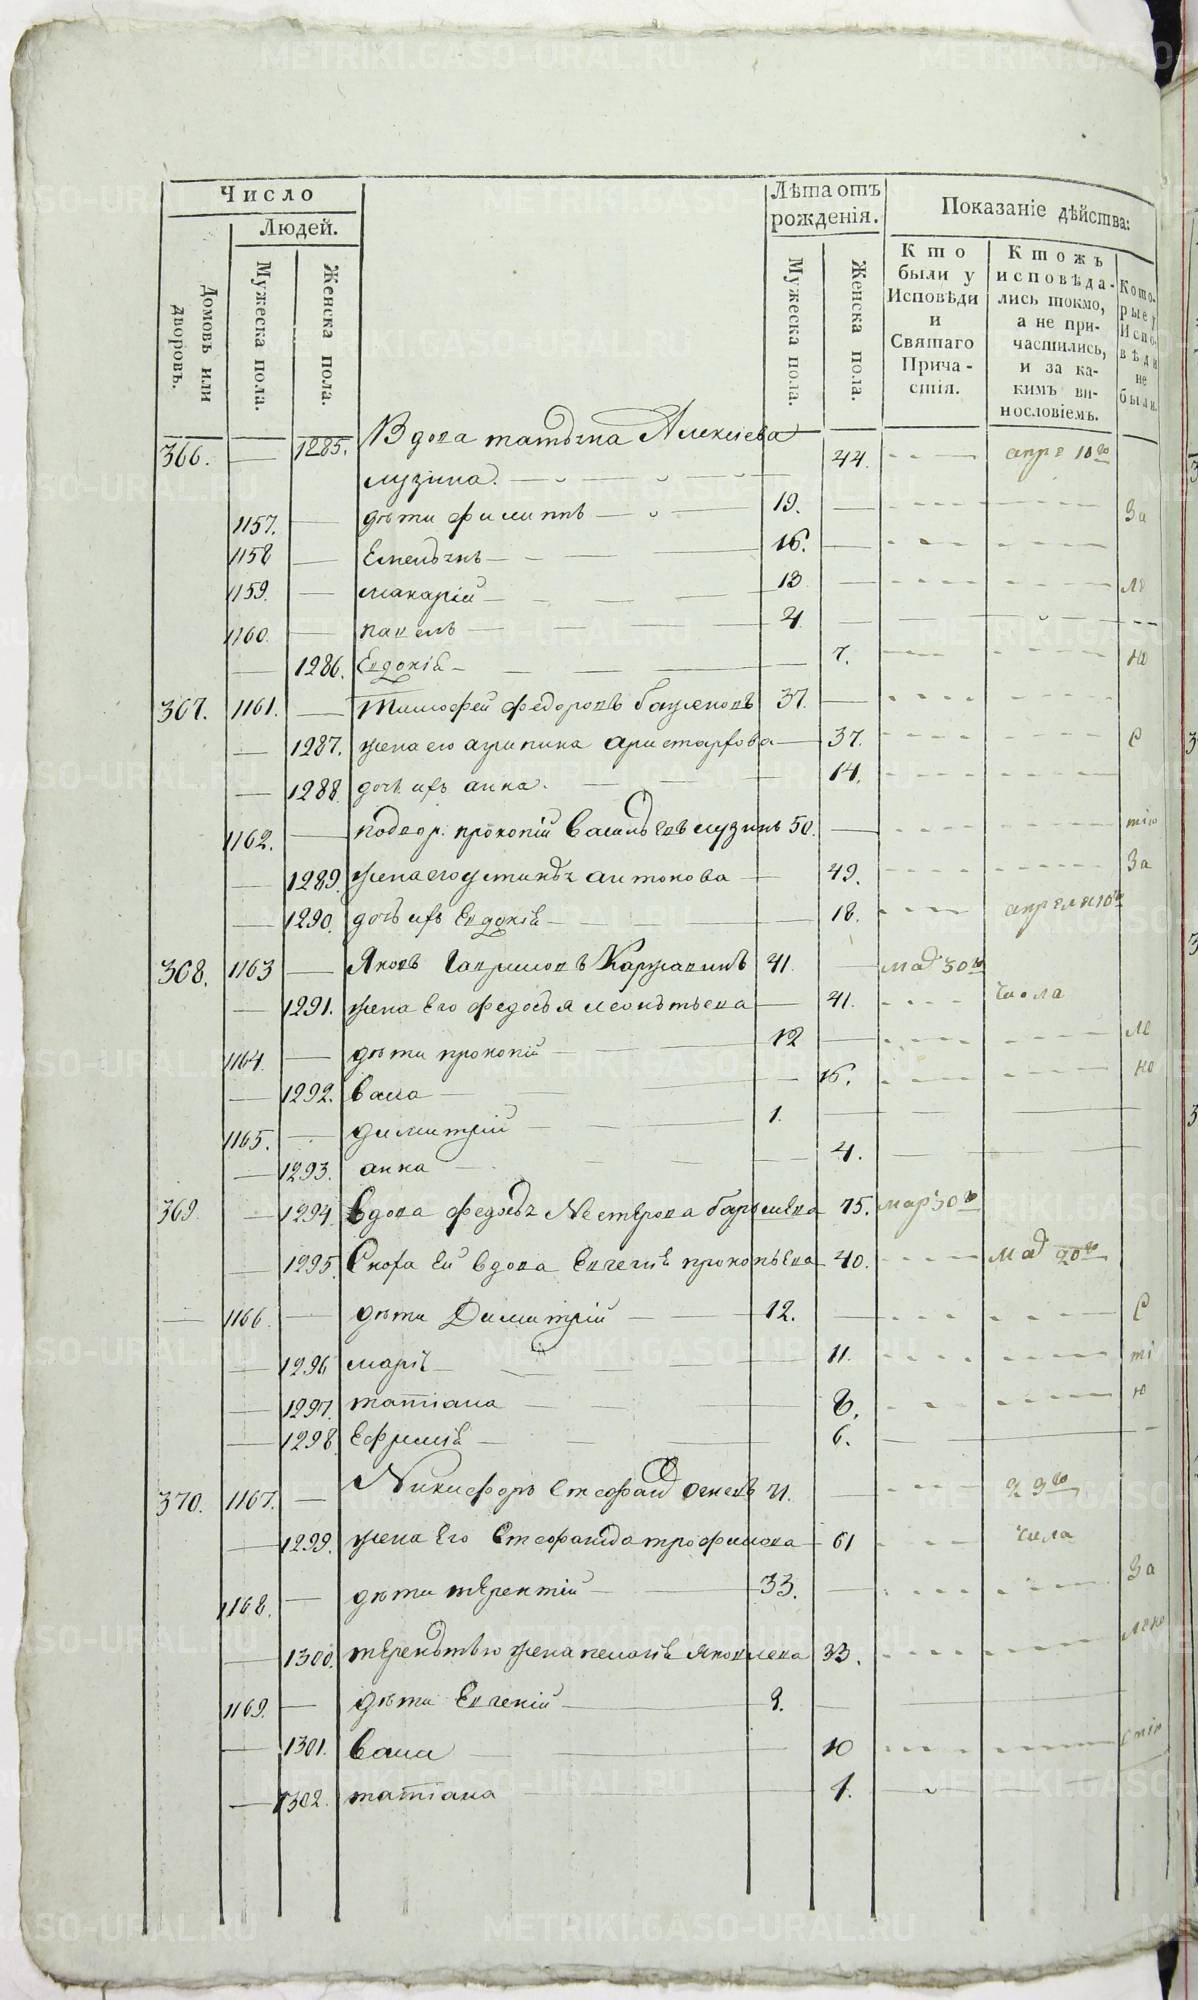 Число
Людей.
Домовъ или дворовъ.
Мужеска пола.
Женска пола.
Лѣта отъ рожденія.
Мужеска пола.
Женска пола.
Показаніе дѣйства:
Кто были у Исповѣди и Святаго Причастія.
Ктожъ исповѣдались токмо, а не причастились, и за какимъ винословіемъ.
Которые у Исповѣди не были.
366. 1285. Вдова татьяна Алексіева
лузина. 44. апре 10го
1157. дѣти филиппъ 19. За
1158 Емельянъ 16.
1159. макарій 13 ле
1160. павелъ 4
1286. Евдокія 7. но
367. 1161. Тимофей федоровъ 37.
1287. жена его агрипина аристархова 37. С
1288 дочь ихъ анна. 14.
1162. подвор. прокопій Васильевъ лузинъ 50. тію
1289. жена его устинья антонова 49. За
1290. дочь ихъ Евдокія 18. апреля 10го
368. 1163 Яковъ Гавриловъ Каржавинъ 41. мар 30го
1291. жена Его федосья леонтьева 41. числа
1164. дѣти прокопій 12 ле
1292. Васа 16. но
1165. димитрій 1.
1293. анна 4.
369. 1294. Вдова федосья Нестерова 75. мар 30го
1295. Сноха Ей вдова Евгенія прокопьева 40. мар 20го
1166. дѣти Димитрій 12. С
1296 марія 11. ті
1297. татіана 8. ю
1298. Ефимія 6.
370. 1167. Никифоръ Стефанов 71. 29го
1299. жена Его Стефанида трофимова 61 числа
1168. дѣти терентій 33. За
1300. терентью жена пелагія Яковлева 33.
1169. дѣти Евгеній 9.
1301. Васа 10 стію
1302. татіана 1.
METRIKI.GASO-URAL.RU